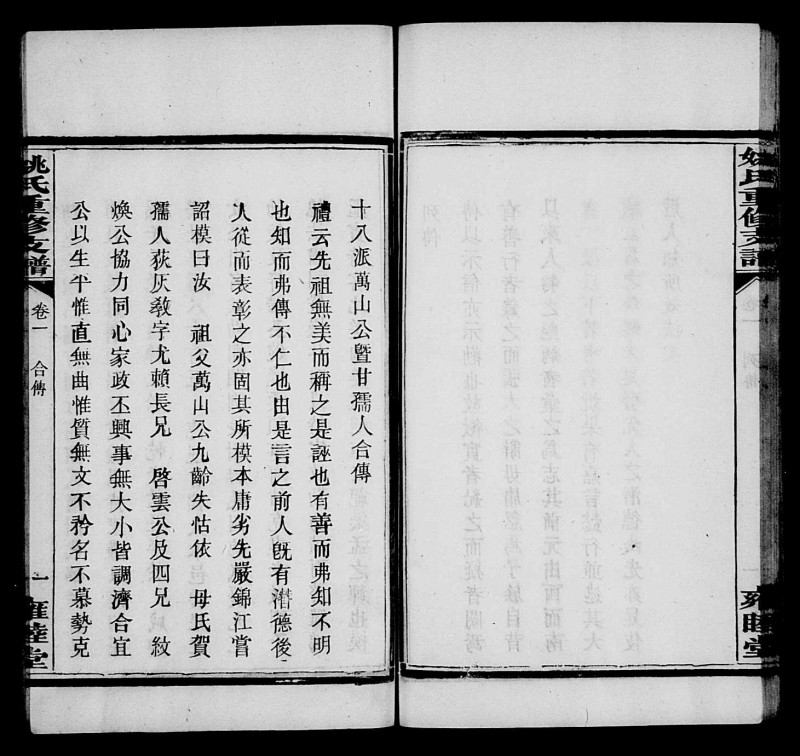 姚氏重修支譜
雍睦堂
十八派萬山公曁甘孺人合傳
禮云先祖無美而稱之是誣也有善而弗知不明
也知而弗傳不仁也由是言之前人既有潛德後
人從而表彰之亦固其所模本庸劣先嚴錦江嘗
詔模曰汝 祖父萬山公九齡失怙依 母氏賀
孺人荻灰敎字尤賴長兄 啓雲公及四兄 紋
煥公協力同心家政丕興事無大小皆調濟合宜
公以生平惟直無曲惟質無文不矜名不慕勢克
姚氏重修支譜
卷一 合傳
一
雍睦堂